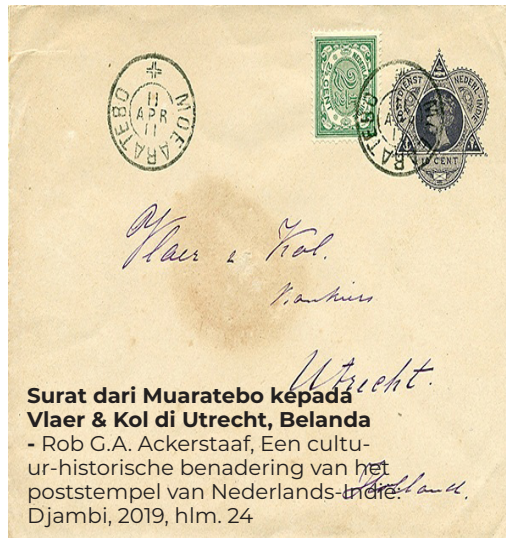 MOEARATEBO
11
APR
11
POSTDIENST NEDERL.-INDIE
10 CENT
Vlaer & Kol.
Bankiers
Utrecht.
Holland.
Surat dari Muaratebo kepada
Vlaer & Kol di Utrecht, Belanda
- Rob G.A. Ackerstaaf, Een cultu-
ur-historische benadering van het
poststempel van Nederlands-Indië:
Djambi, 2019, hlm. 24